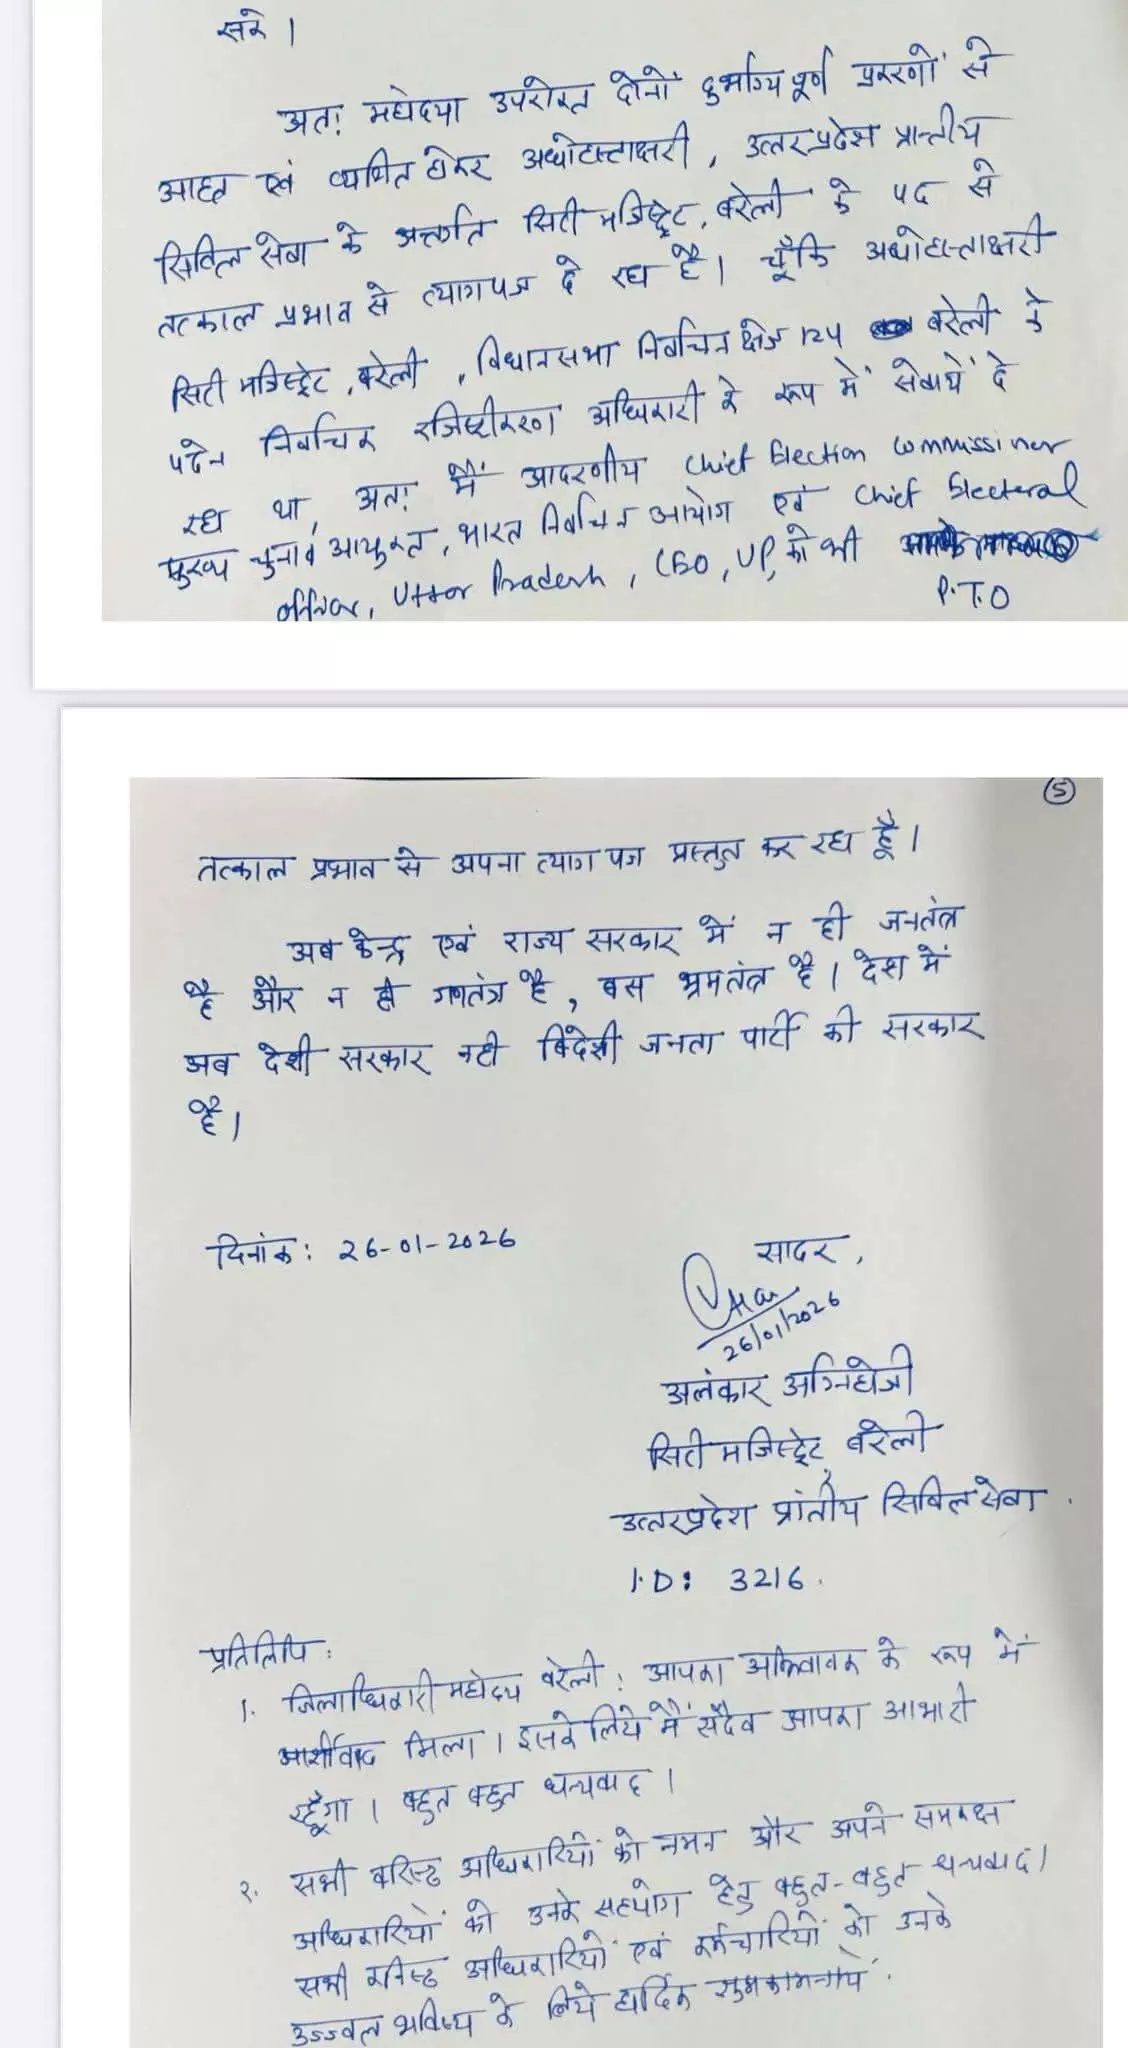 सके।
अतः महोदया उपरोक्त दोनों दुर्भाग्यपूर्ण प्रकरणों से
आहत एवं व्यथित होकर अधोहस्ताक्षरी, उत्तर प्रदेश प्रान्तीय
सिविल सेवा के अन्तर्गत सिटी मजिस्ट्रेट, बरेली के पद से
तत्काल प्रभाव से त्यागपत्र दे रहा है। चूँकि अधोहस्ताक्षरी
सिटी मजिस्ट्रेट, बरेली, विधानसभा निर्वाचन क्षेत्र 124 बरेली के
पदेन निर्वाचक रजिस्ट्रीकरण अधिकारी के रूप में सेवायें दे
रहा था, अतः मैं आदरणीय Chief Election Commissiner
मुख्य चुनाव आयुक्त, भारत निर्वाचन आयोग एवं Chief Electeral
officer, Uttar Pradesh, CEO, UP, को भी
P.T.O
5
तत्काल प्रभाव से अपना त्याग पत्र प्रस्तुत कर रहा हूँ।
अब केन्द्र एवं राज्य सरकार में न ही जनतंत्र
है और न ही गणतंत्र है, बस भ्रमतंत्र है। देश में
अब देशी सरकार नही विदेशी जनता पार्टी की सरकार
है।
दिनांक: 26-01-2026
सादर,
26/01/2026
अलंकार अग्निहोत्री
सिटी मजिस्ट्रेट, बरेली
उत्तरप्रदेश प्रांतीय सिविल सेवा.
I.D: 3216.
प्रतिलिपि:
1. जिलाधिकारी महोदय बरेली: आपका अभिवावक के रूप में
आर्शीवाद मिला। इसके लिये मैं सदैव आपका आभारी
रहूँगा। बहुत बहुत धन्यवाद।
२. सभी वरिष्ठ अधिकारियों को नमन और अपने समकक्ष
अधिकारियों को उनके सहयोग हेतु बहुत-बहुत धन्यवाद।
सभी कनिष्ठ अधिकारियों एवं कर्मचारियों को उनके
उज्ज्वल भविष्य के लिये हार्दिक शुभकामनायें.